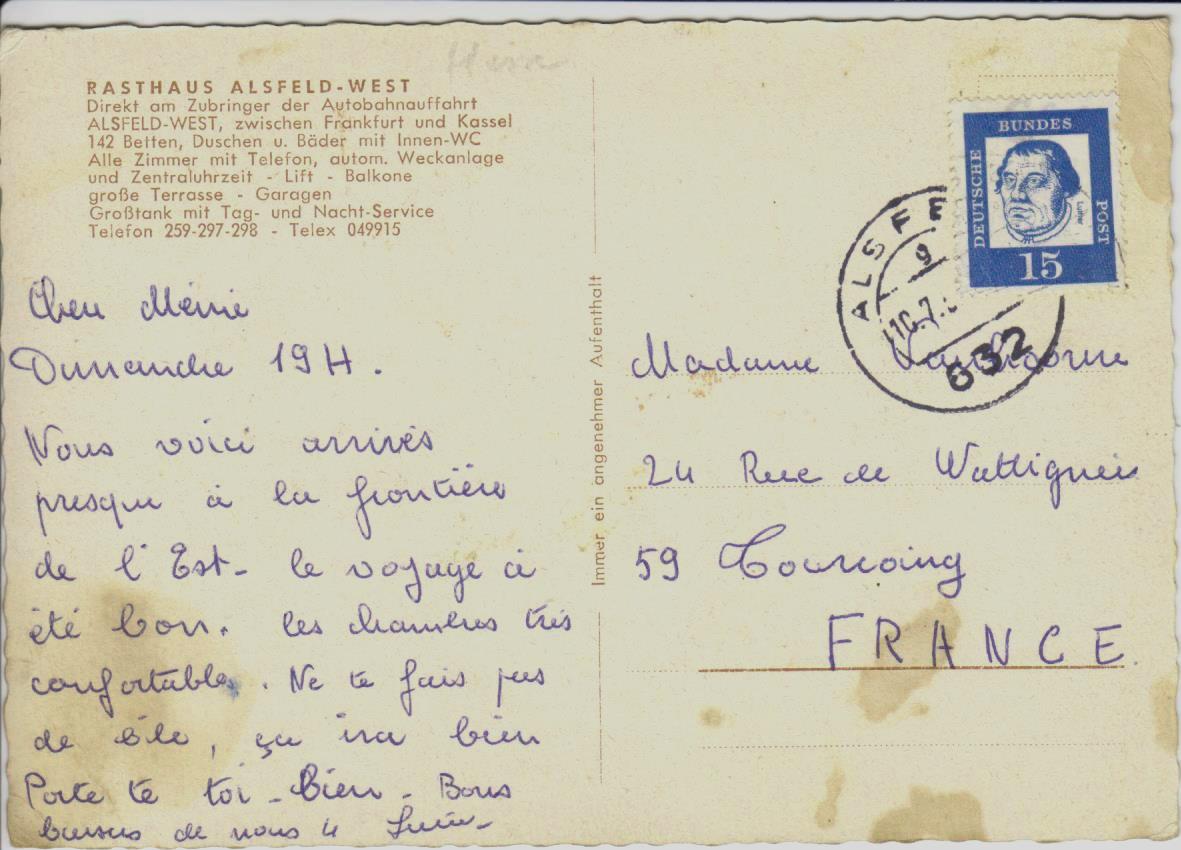 RASTHAUS ALSFELD-WEST
Direkt am Zubringer der Autobahnauffahrt
ALSFELD-WEST, zwischen Frankfurt und Kassel
142 Betten, Duschen u. Bäder mit Innen-WC
Alle Zimmer mit Telefon, autom. Weckanlage
und Zentraluhrzeit - Lift - Balkone
große Terrasse - Garagen
Großtank mit Tag- und Nacht-Service
Telefon 259-297-298 - Telex 049915
Mémie
Dimanche 19 H.
Nous voici arrivés
presque à la frontière
de l'Est - le voyage a
été bon. les chambres très
confortables. Ne te fais pas
de bile, ça ira bien
Porte te toi - bien - Bons
baisers de nous 4
Immer ein angenehmer Aufenthalt
DEUTSCHE
BUNDES
POST
Luther
15
ALSFE
9
10.7.
632
Madame
24 Rue de Wattignies
59 Tourcoing
FRANCE